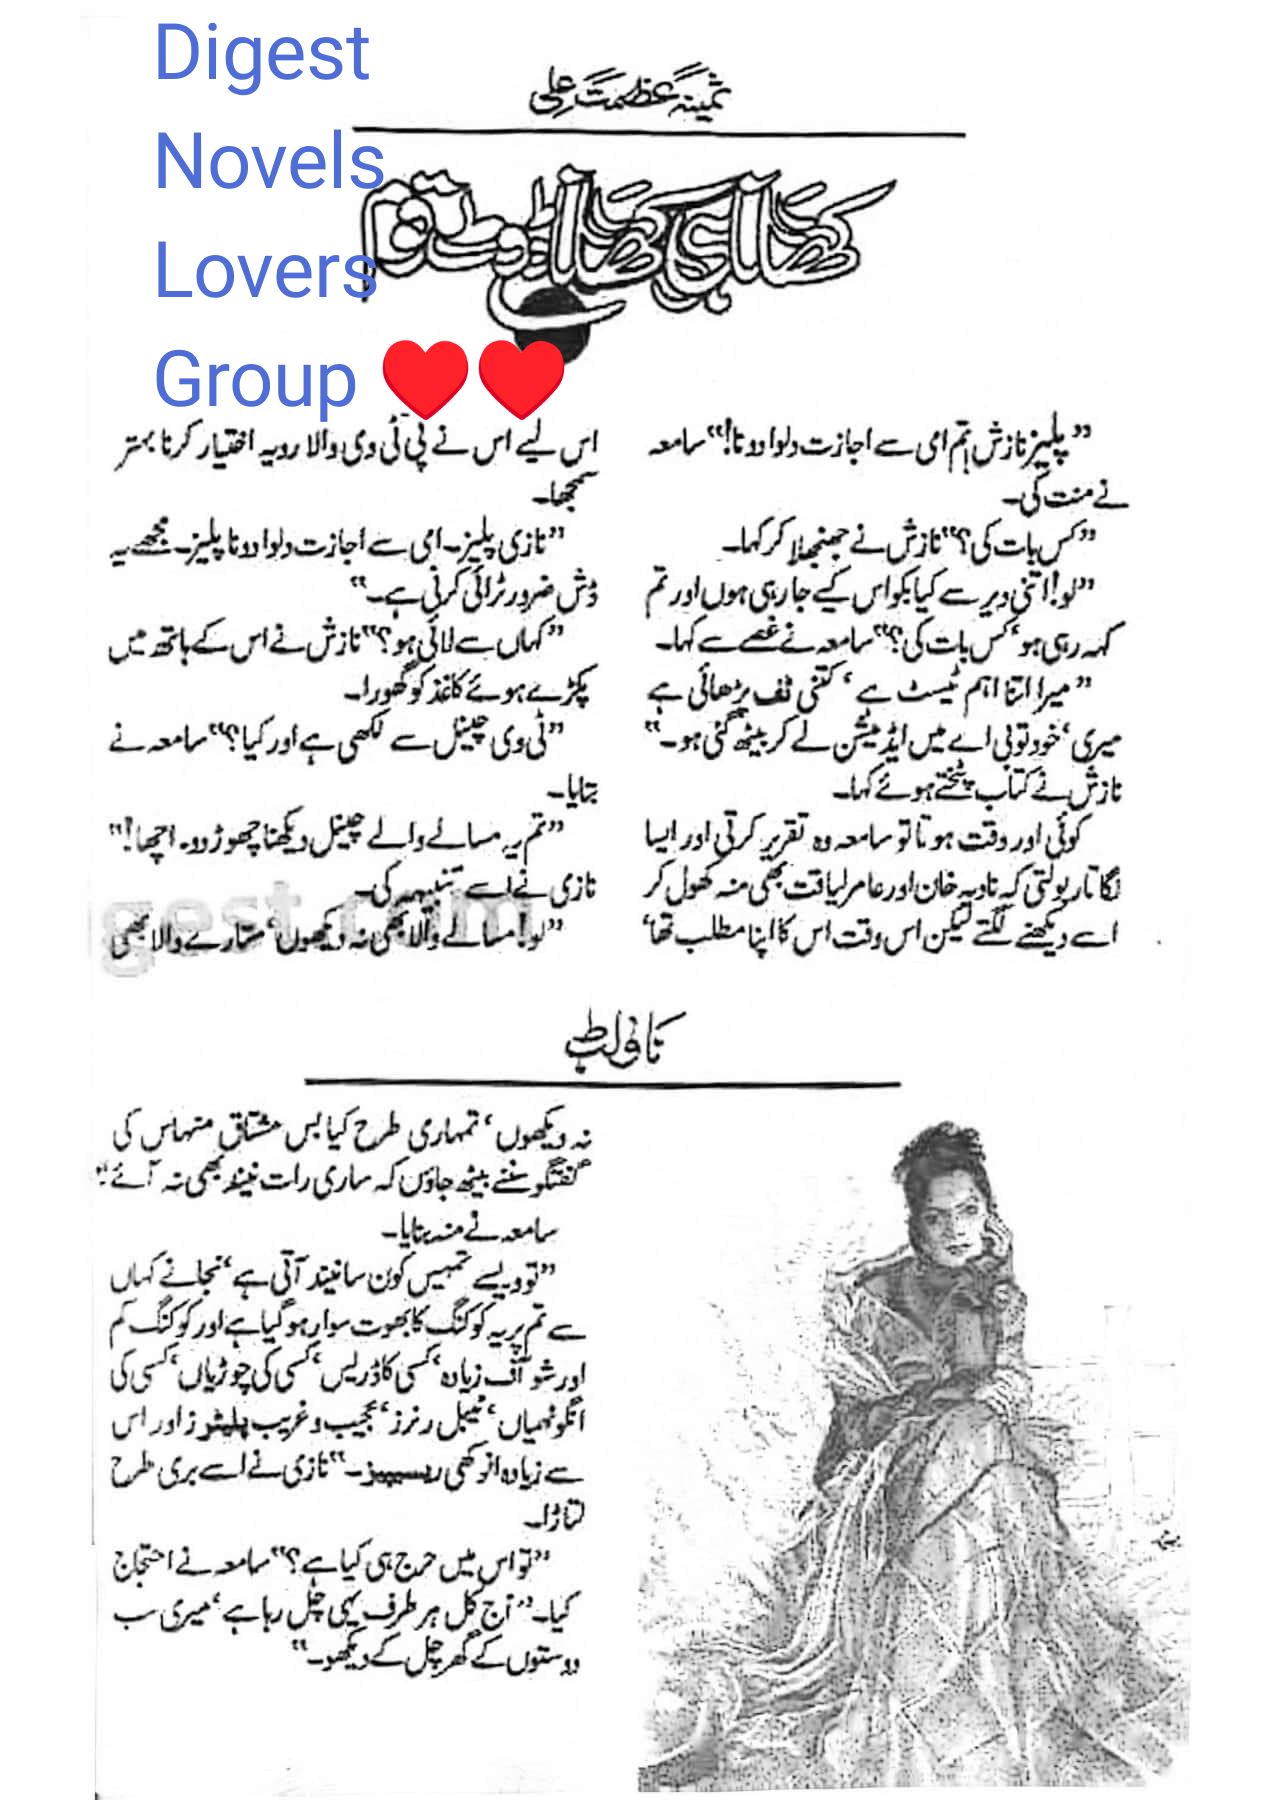 Digest
Novels
Lovers
Group ❤️❤️
ثمینہ عظمت علی
”پلیز نازش! تم امی سے اجازت دلوا دو نا!“ سامعہ
نے منت کی۔
”کس بات کی؟“ نازش نے جھنجھلا کر کہا۔
”لو! اتنی دیر سے کیا بکواس کیے جا رہی ہوں اور تم
کہہ رہی ہو‘ کس بات کی؟“ سامعہ نے غصے سے کہا۔
”میرا اتنا اہم ٹیسٹ ہے‘ کتنی ٹف پڑھائی ہے
میری‘ خود تو بی اے میں ایڈمیشن لے کر بیٹھ گئی ہو۔“
نازش نے کتاب پٹختے ہوئے کہا۔
کوئی اور وقت ہوتا تو سامعہ وہ تقریر کرتی اور ایسا
لگاتار بولتی کہ نادیہ خان اور عامر لیاقت بھی منہ کھول کر
اسے دیکھنے لگتے لیکن اس وقت اس کا اپنا مطلب تھا‘
اس لیے اس نے پی ٹی وی والا رویہ اختیار کرنا بہتر
سمجھا۔
”نازی پلیز۔ امی سے اجازت دلوا دو نا پلیز۔ مجھے یہ
ڈش ضرور ٹرائی کرنی ہے۔“
”کہاں سے لائی ہو؟“ نازش نے اس کے ہاتھ میں
پکڑے ہوئے کاغذ کو گھورا۔
”ٹی وی چینل سے لکھی ہے اور کیا؟“ سامعہ نے
بتایا۔
”تم یہ مسالے والے چینل دیکھنا چھوڑ دو۔ اچھا!“
نازی نے اسے تنبیہہ کی۔
”لو! مسالے والا بھی نہ دیکھوں‘ ستارے والا بھی
gest.com
ناولٹ
نہ دیکھوں‘ تمہاری طرح کیا بس مشتاق منہاس کی
گفتگو سننے بیٹھ جاؤں کہ ساری رات نیند بھی نہ آئے“
سامعہ نے منہ بنایا۔
”تو ویسے تمہیں کون سا نیند آتی ہے‘ نجانے کہاں
سے تم پر یہ کوکنگ کا بھوت سوار ہو گیا ہے اور کوکنگ کم
اور شو آف زیادہ‘ کسی کا ڈریس‘ کسی کی چوڑیاں‘ کسی کی
انگوٹھیاں‘ ٹیبل رنرز‘ عجیب و غریب پلیٹرز اور اس
سے زیادہ انوکھی ریسیپیز۔“ نازی نے اسے بری طرح
لتاڑا۔
”تو اس میں حرج ہی کیا ہے؟“ سامعہ نے احتجاج
کیا۔ ”آج کل ہر طرف یہی چل رہا ہے‘ میری سب
دوستوں کے گھر چل کے دیکھو۔“